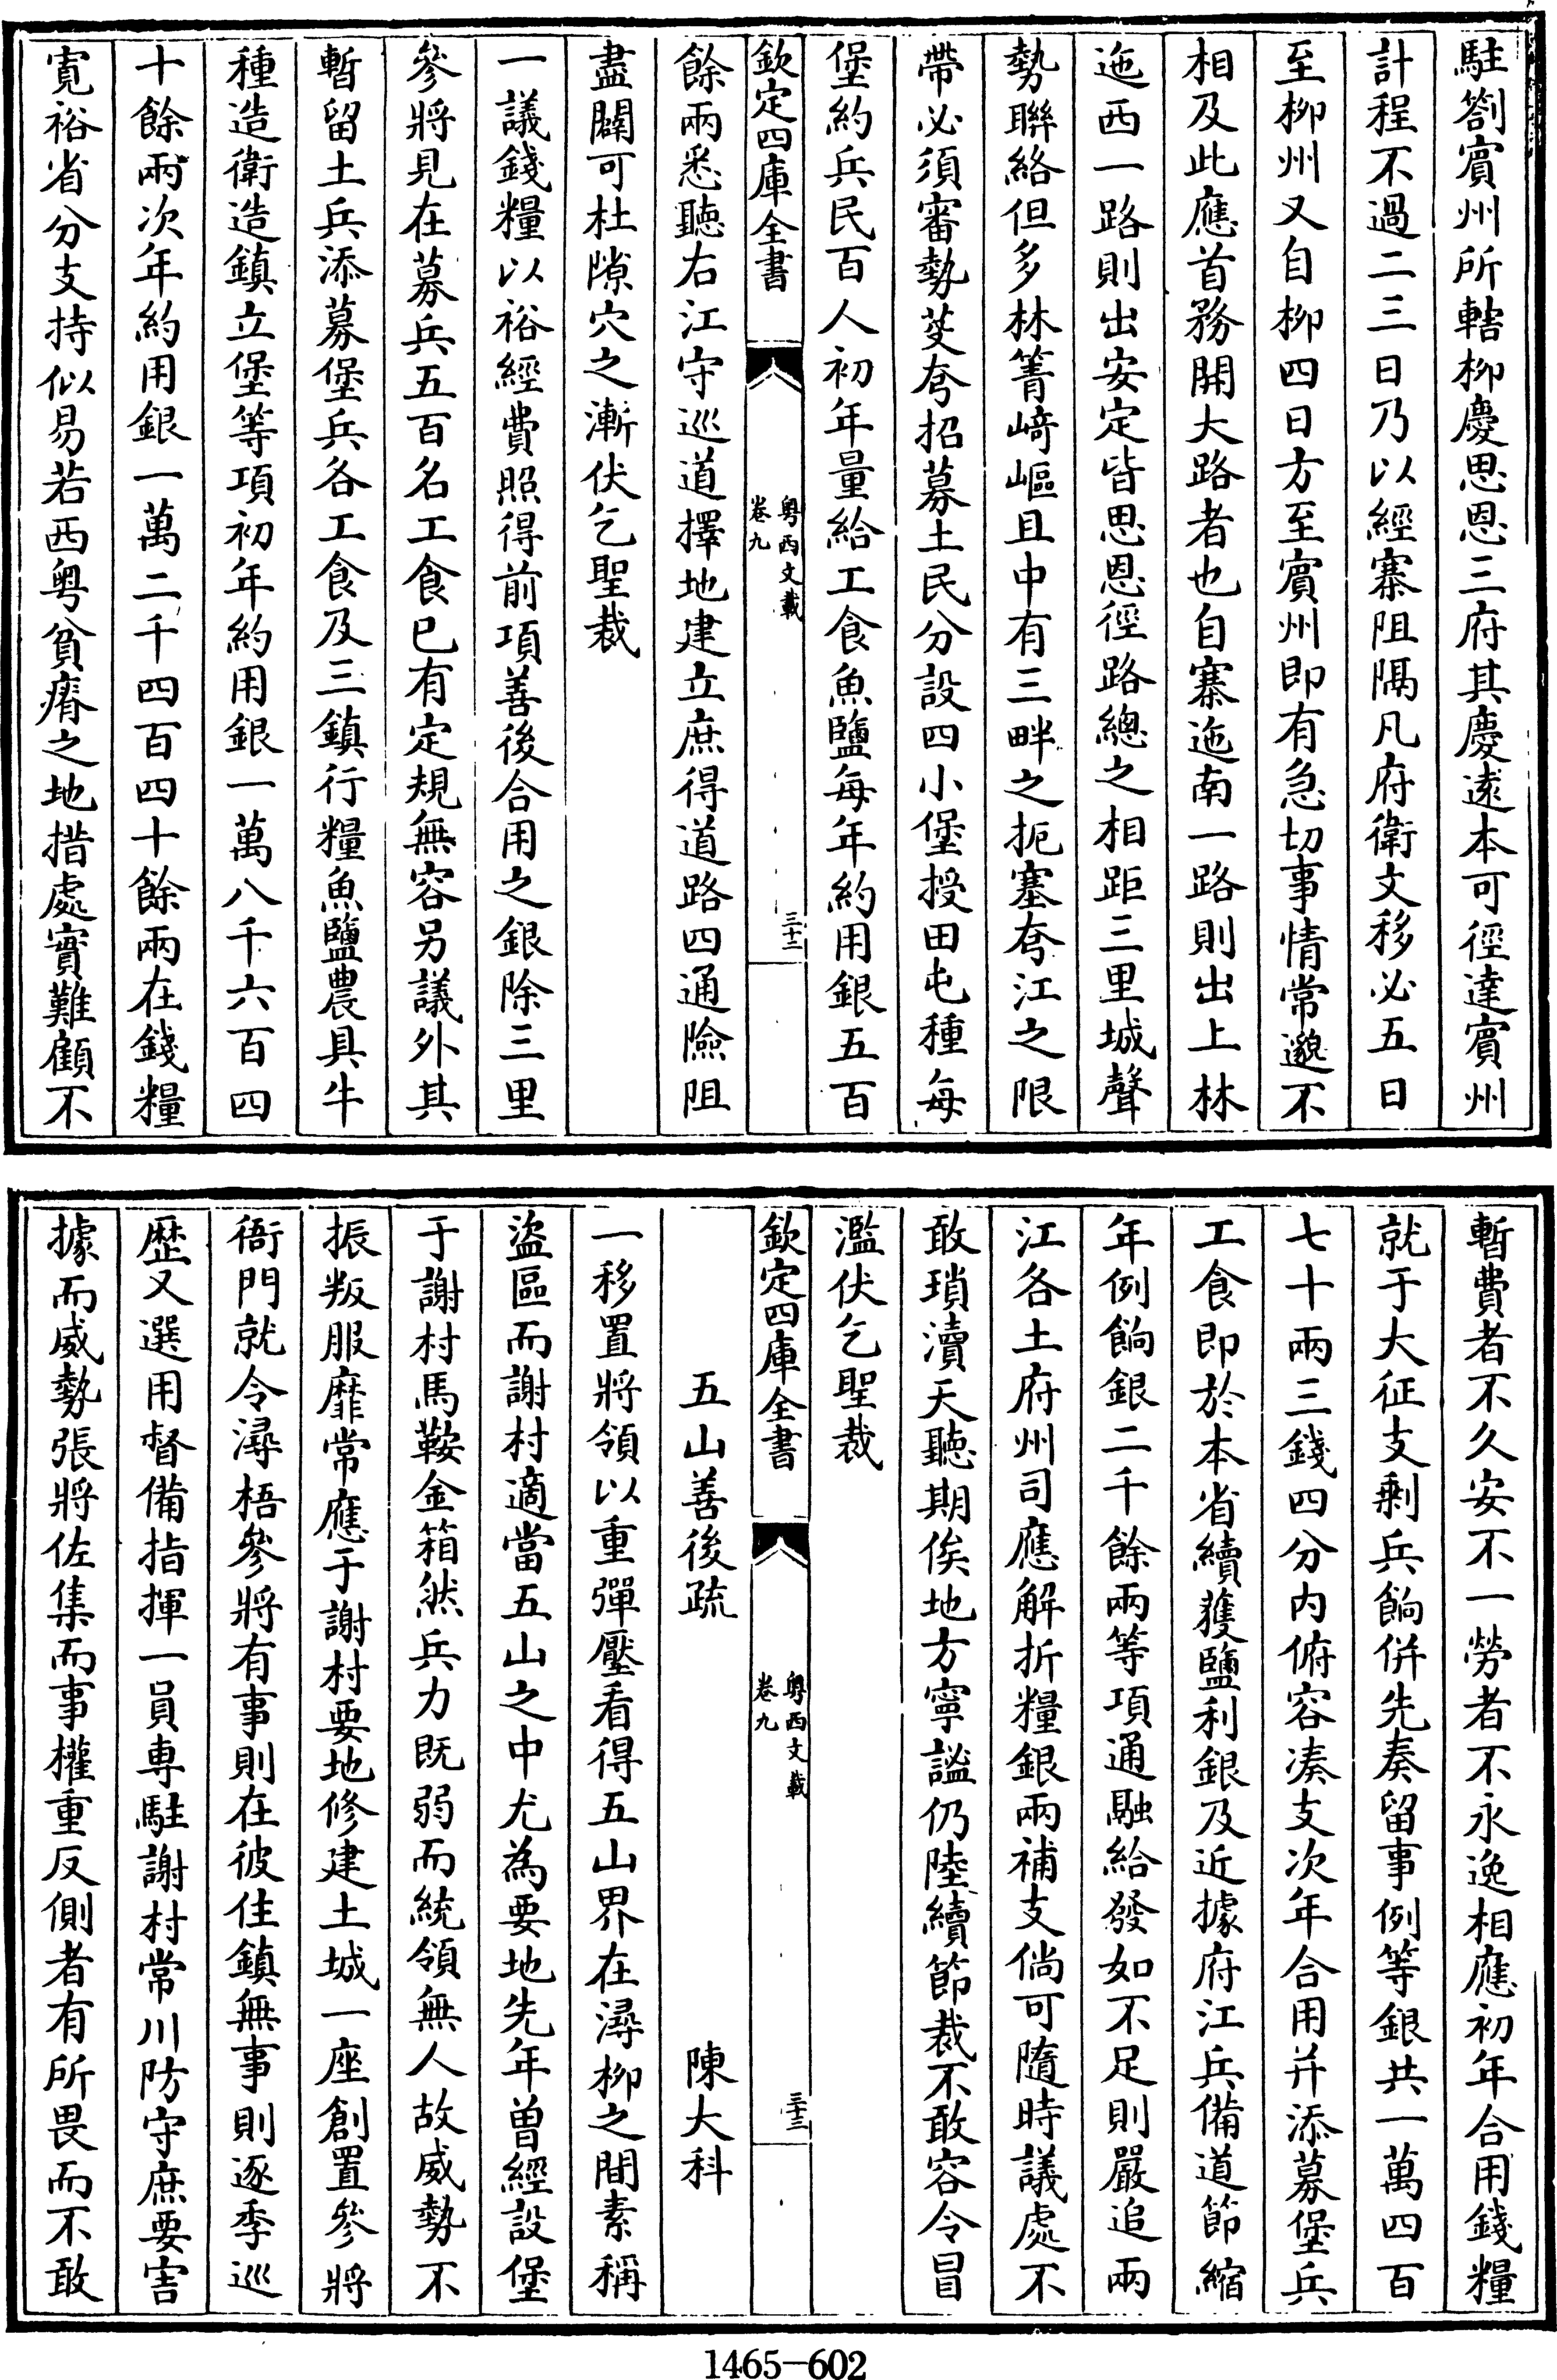 駐劄賓州所轄柳慶思恩三府其慶逺本可徑達賓州
計程不過二三日乃以經寨阻隔凡府衛文移必五日
至柳州又自柳四日方至賓州即有急切事情常邈不
相及此應首務開大路者也自寨迤南一路則出上林
迤西一路則出安定皆思恩徑路總之相距三里城聲
勢聯絡但多林箐崎嶇且中有三畔之扼塞夸江之限
帶必須審勢芟夸招募土民分設四小堡授田屯種每
堡約兵民百人初年量給工食魚鹽每年約用銀五百
欽定四庫全書
粤西文載
卷九
三十二
餘兩悉聽右江守巡道擇地建立庶得道路四通險阻
盡闢可杜隙穴之漸伏乞聖裁
一議錢糧以裕經費照得前項善後合用之銀除三里
參將見在募兵五百名工食已有定規無容另議外其
暫留土兵添募堡兵各工食及三鎮行糧魚鹽農具牛
種造衛造鎮立堡等項初年約用銀一萬八千六百四
十餘兩次年約用銀一萬二千四百四十餘兩在錢糧
寛裕省分支持似易若西粤貧瘠之地措處實難顧不
暫費者不久安不一勞者不永逸相應初年合用錢糧
就于大征支剩兵餉併先奏留事例等銀共一萬四百
七十兩三錢四分内俯容凑支次年合用并添募堡兵
工食即於本省續獲鹽利銀及近據府江兵備道節縮
年例餉銀二千餘兩等項通融給發如不足則嚴追兩
江各土府州司應解折糧銀兩補支倘可隨時議處不
敢瑣瀆天聽期俟地方寧謐仍陸續節裁不敢容令冒
濫伏乞聖裁
欽定四庫全書
粤西文載
卷九
三十三
五山善後疏
陳大科
一移置將領以重彈壓看得五山界在潯柳之間素稱
盜區而謝村適當五山之中尤為要地先年曾經設堡
于謝村馬鞍金箱然兵力既弱而統領無人故威勢不
振叛服靡常應于謝村要地修建土城一座創置參將
衙門就令潯梧參將有事則在彼住鎮無事則逐季巡
歷又選用督備指揮一員専駐謝村常川防守庶要害
據而威勢張將佐集而事權重反側者有所畏而不敢
1465-602